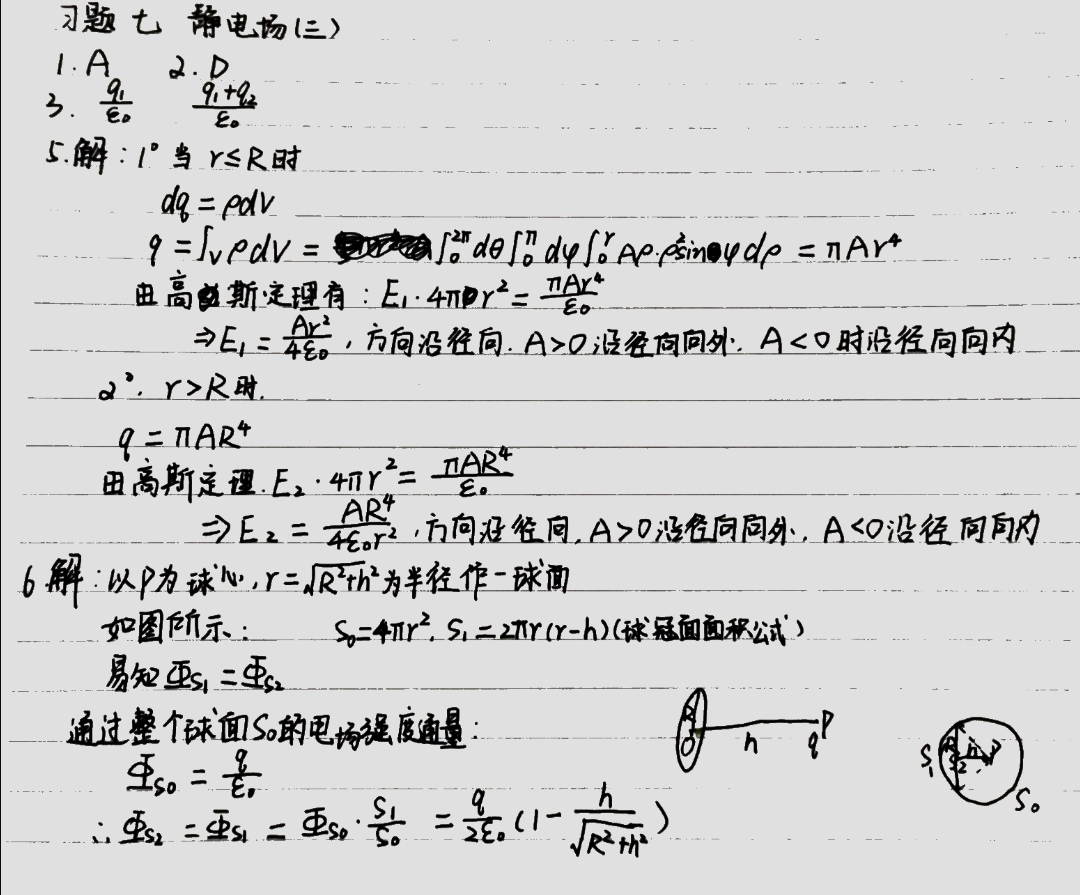 习题七 静电场(三)
1. A 2. D
3. q₁/ε₀ (q₁+q₂)/ε₀
5.解: 1° 当 r≤R时
dq = ρdV
q = ∫ᵥρdV = ∫₀^2π dθ∫₀^π dφ∫₀^r Aρ·ρ²sinφdρ = πAr⁴
由高斯定理有: E₁·4πr² = πAr⁴/ε₀
⇒E₁ = Ar²/4ε₀, 方向沿径向. A>0沿径向向外. A<0时沿径向向内
2°. r>R时.
q = πAR⁴
由高斯定理. E₂·4πr² = πAR⁴/ε₀
⇒E₂ = AR⁴/4ε₀r², 方向沿径向, A>0沿径向向外, A<0沿径向向内
6解: 以P为球心, r=√(R²+h²)为半径作一球面
如图所示: S₀=4πr², S₁=2πr(r-h)(球冠面面积公式)
易知Φs₁=Φs₂
通过整个球面S₀的电场强度通量:
R O h q P
S₁ R S₂ h P S₀
Φs₀ = q/ε₀
∴Φs₂ = Φs₁ = Φs₀·S₁/S₀ = q/2ε₀(1-h/√(R²+h²))